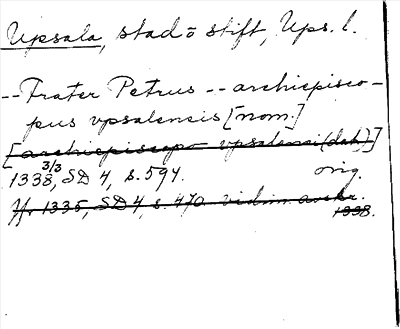 Upsala, stad o stift, Ups. l.
-- Frater Petrus -- archiepisco-
pus vpsalensis [nom.]
[archiepiscopo vpsalensi (dat.)]
1338 3/3, SD 4, s. 594. orig.
Jfr 1335, SD 4, s. 470. vidim. avskr.
1338.